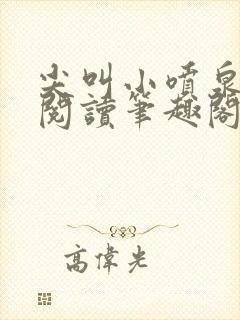 尖叫小噴泉
閱讀筆趣閣
高偉光